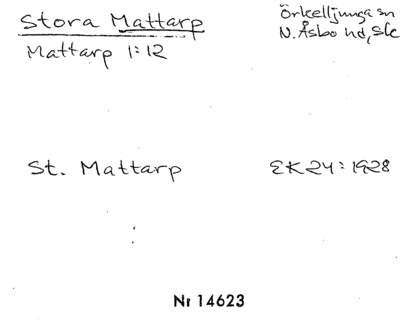 Stora Mattarp
Örkelljunga sn
Mattarp 1:12
N. Åsbo hd, Sk
St. Mattarp
EK24: 1928
Nr 14623